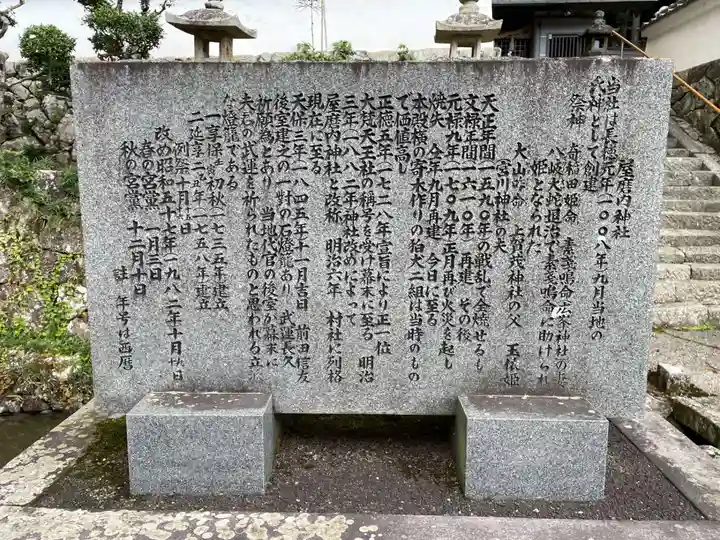 屋磨内神社
当社は長徳元年一〇〇八年九月当地の
氏神として創建
祭神 奇稲田姫命 素戔鳴命広峯神社の
八岐大蛇退治で素戔鳴命に助けられ
姫となられた
大山咋命 上賀茂神社の父 玉依姫
宮川神社の夫
天正年間一五九〇年の戦乱で全焼せるも
文禄年間一六一〇年 再建 その後
元禄九年一七〇九年正月再び火災を起し
焼失 仝年九月再建 今日に至る
本殿横の寄木作りの狛犬二組は当時のもの
で価値高し
正徳五年一七二八年宣旨により正一位
大梵天王社の称号を受け幕末に至る 明治
三年一八八二年神社改めによって
屋磨内神社と改称 明治六年 村社に列格
現在に至る
天保三年一八四五年十一月吉日 前田信友
後室建之の一対の石燈籠あり 武運長久
祈願為とあり 当地代官の後室が幕末に
夫君の武運を祈られたものと思われる立派
な燈籠である
一享保 初秋一七三五年建立
二延享 年一七五八年建立
例祭十月 日
改め昭和五十七年一九八二年十月 日
春の宮黨 一月三日
秋の宮黨 十二月十日
註 年号は西暦